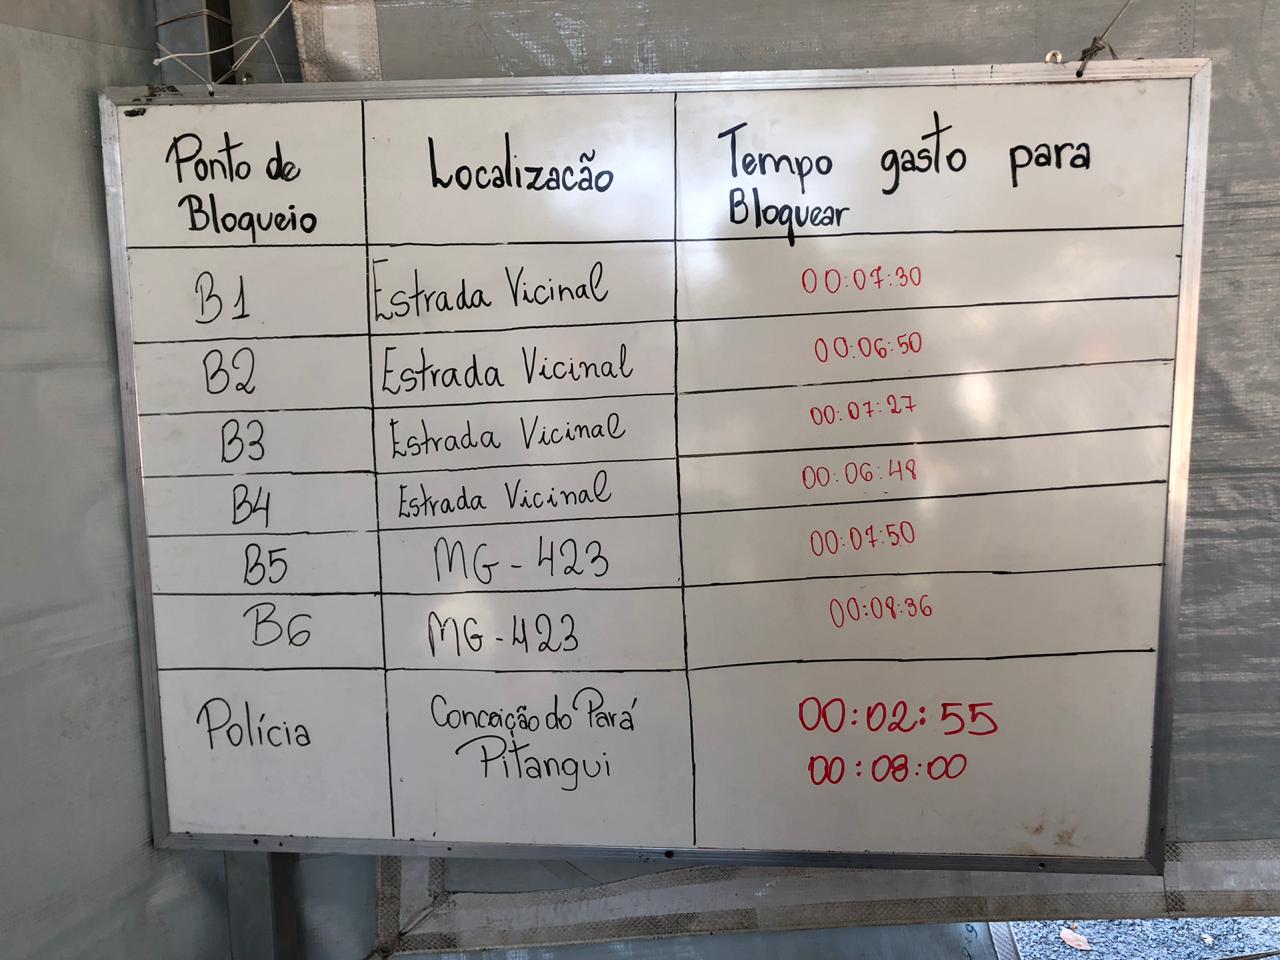 Ponto de Bloqueio
Localizacão
Tempo gasto para Bloquear
B1 Estrada Vicinal 00:07:30
B2 Estrada Vicinal 00:06:50
B3 Estrada Vicinal 00:07:27
B4 Estrada Vicinal 00:06:48
B5 MG-423 00:07:50
B6 MG-423 00:08:36
Polícia Conceição do Pará 00:02:55
Pitangui 00:08:00